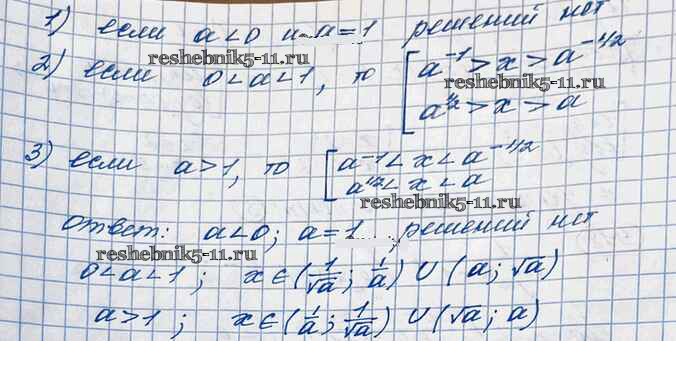 1) если a < 0 и a = 1 решений нет
reshebnik5-11.ru
2) если 0 < a < 1, то [ a⁻¹ > x > a^{-1/2}
a^{1/2} > x > a
3) если a > 1, то [ a⁻¹ < x < a^{-1/2}
a^{1/2} < x < a
reshebnik5-11.ru
ответ: a < 0; a = 1; решений нет
reshebnik5-11.ru
0 < a < 1; x ∈ (1/√a; 1/a) ∪ (a; √a)
a > 1; x ∈ (1/a; 1/√a) ∪ (√a; a)